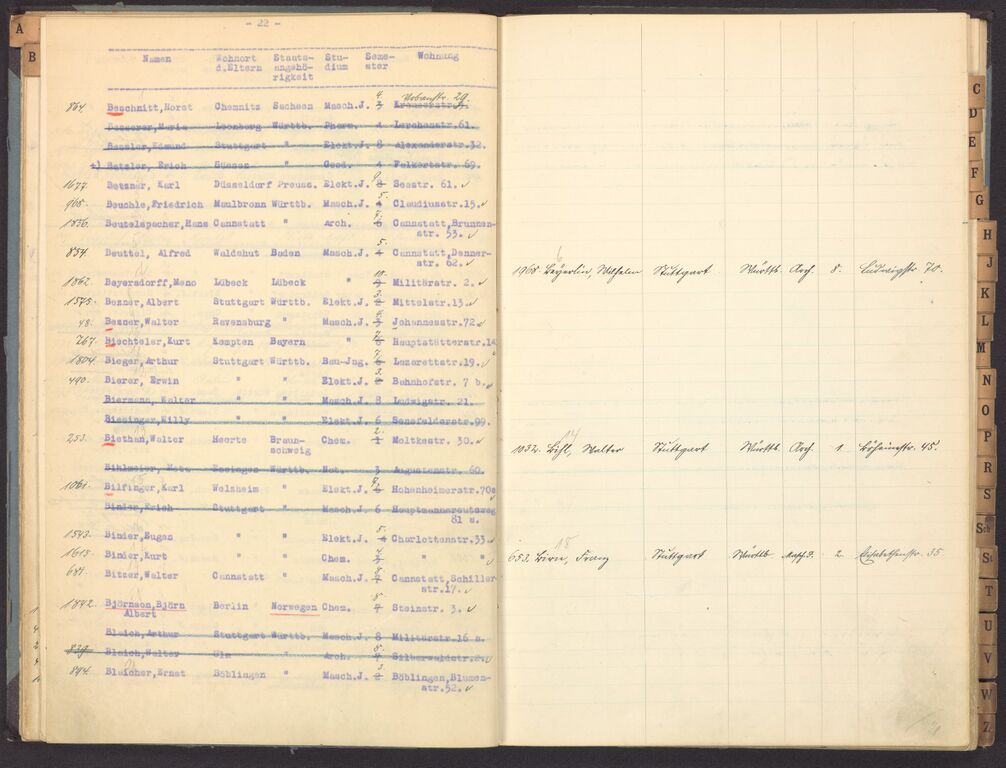 A
B
- 22 -
Namen Wohnort d.Eltern Staats-angehö-rigkeit Stu-dium Seme-ster Wohnung
Urbanstr. 29.
864. Beschnitt,Horst Chemnitz Sachsen Masch.J. 4. 3 Kremserstr.
Besserer,Maria Leonberg Württb. Pharm. 4 Lerchenstr.61.
Edmund Stuttgart " Elekt.J. 8 Alexanderstr.32.
+) Betzler, Erich Süssen " Geod. 4 Falkertstr. 69.
1677. Betzner, Karl Düsseldorf Preuss. Elekt.J. 9 8 Seestr. 61.
965. Beuchle,Friedrich Maulbronn Württb. Masch.J. 5. 4 Claudiusstr.15.
1836. Beutelspacher,Hans Cannstatt " Arch. 6 Cannstatt,Brunnen-
str. 53.
854. Beuttel, Alfred Waldshut Baden Masch.J. 5. 4 Cannstatt,Denner-
str. 62.
1862 Beyersdorff,Meno Lübeck Lübeck " 10. 9 Militärstr. 2.
1575. Bezner,Albert Stuttgart Württb. Elekt.J. 3. 2 Mittelstr.13.
48. Bezner,Walter Ravensburg " Masch.J. 3 Johannesstr.72.
267. Biechteler,Kurt Kempten Bayern " 7. 6 Hauptstätterstr.14
1804. Bieger,Arthur Stuttgart Württb. Bau-Jng. 7. 6 Lazarettstr.19.
490. Bierer, Erwin " " Elekt.J. 3. 2 Bahnhofstr. 7 b.
Biermann,Walter " " Masch.J. 8 Ludwigstr. 21.
Biesinger,Willy " " Elekt.J. 6 Senefelderstr.99.
253. Biethan,Walter Heerte Braun-schweig Chem. 2. 1 Moltkestr. 30.
Bihlmeier, Württb. 3 Augustenstr. 60.
1061. Bilfinger,Karl Welzheim " Elekt.J. 6 Hohenheimerstr.70a
Binder,Erich Stuttgart " Masch.J. 6 Hauptmannsreutweg
81 a.
1543. Binder,Eugen " " Elekt.J. 5. 4 Charlottenstr.33.
1615. Binder,Kurt " " Chem. " "
684. Bitzer,Walter Cannstatt " Masch.J. 7 Cannstatt,Schiller-
str.17.
1842. Björnson,Björn Albert Berlin Norwegen Chem. 8. 7 Steinstr. 3.
Bleich,Arthur Stuttgart Württb. Masch.J. 8 Militärstr.16 a.
839. Bleich,Walter Ulm " Arch. 8. 7 Silberwaldstr.
894. Bleicher,Ernst Böblingen " Masch.J. 3. 2 Böblingen,Blumen-
str.52.
6
1968 Beyerlin, Wilhelm Stuttgart Württb. Arch. 8. Ludwigstr 70.
14
1032. Bihl, Walter Stuttgart Württb. Arch. 1. Böheimstr. 45.
18
653. Birn, Franz Stuttgart Württb Masch.J. 2. Elisabethenstr. 35
C
D
E
F
G
H
J
K
L
M
N
O
P
R
S
Sch
St
T
U
V
W
Z